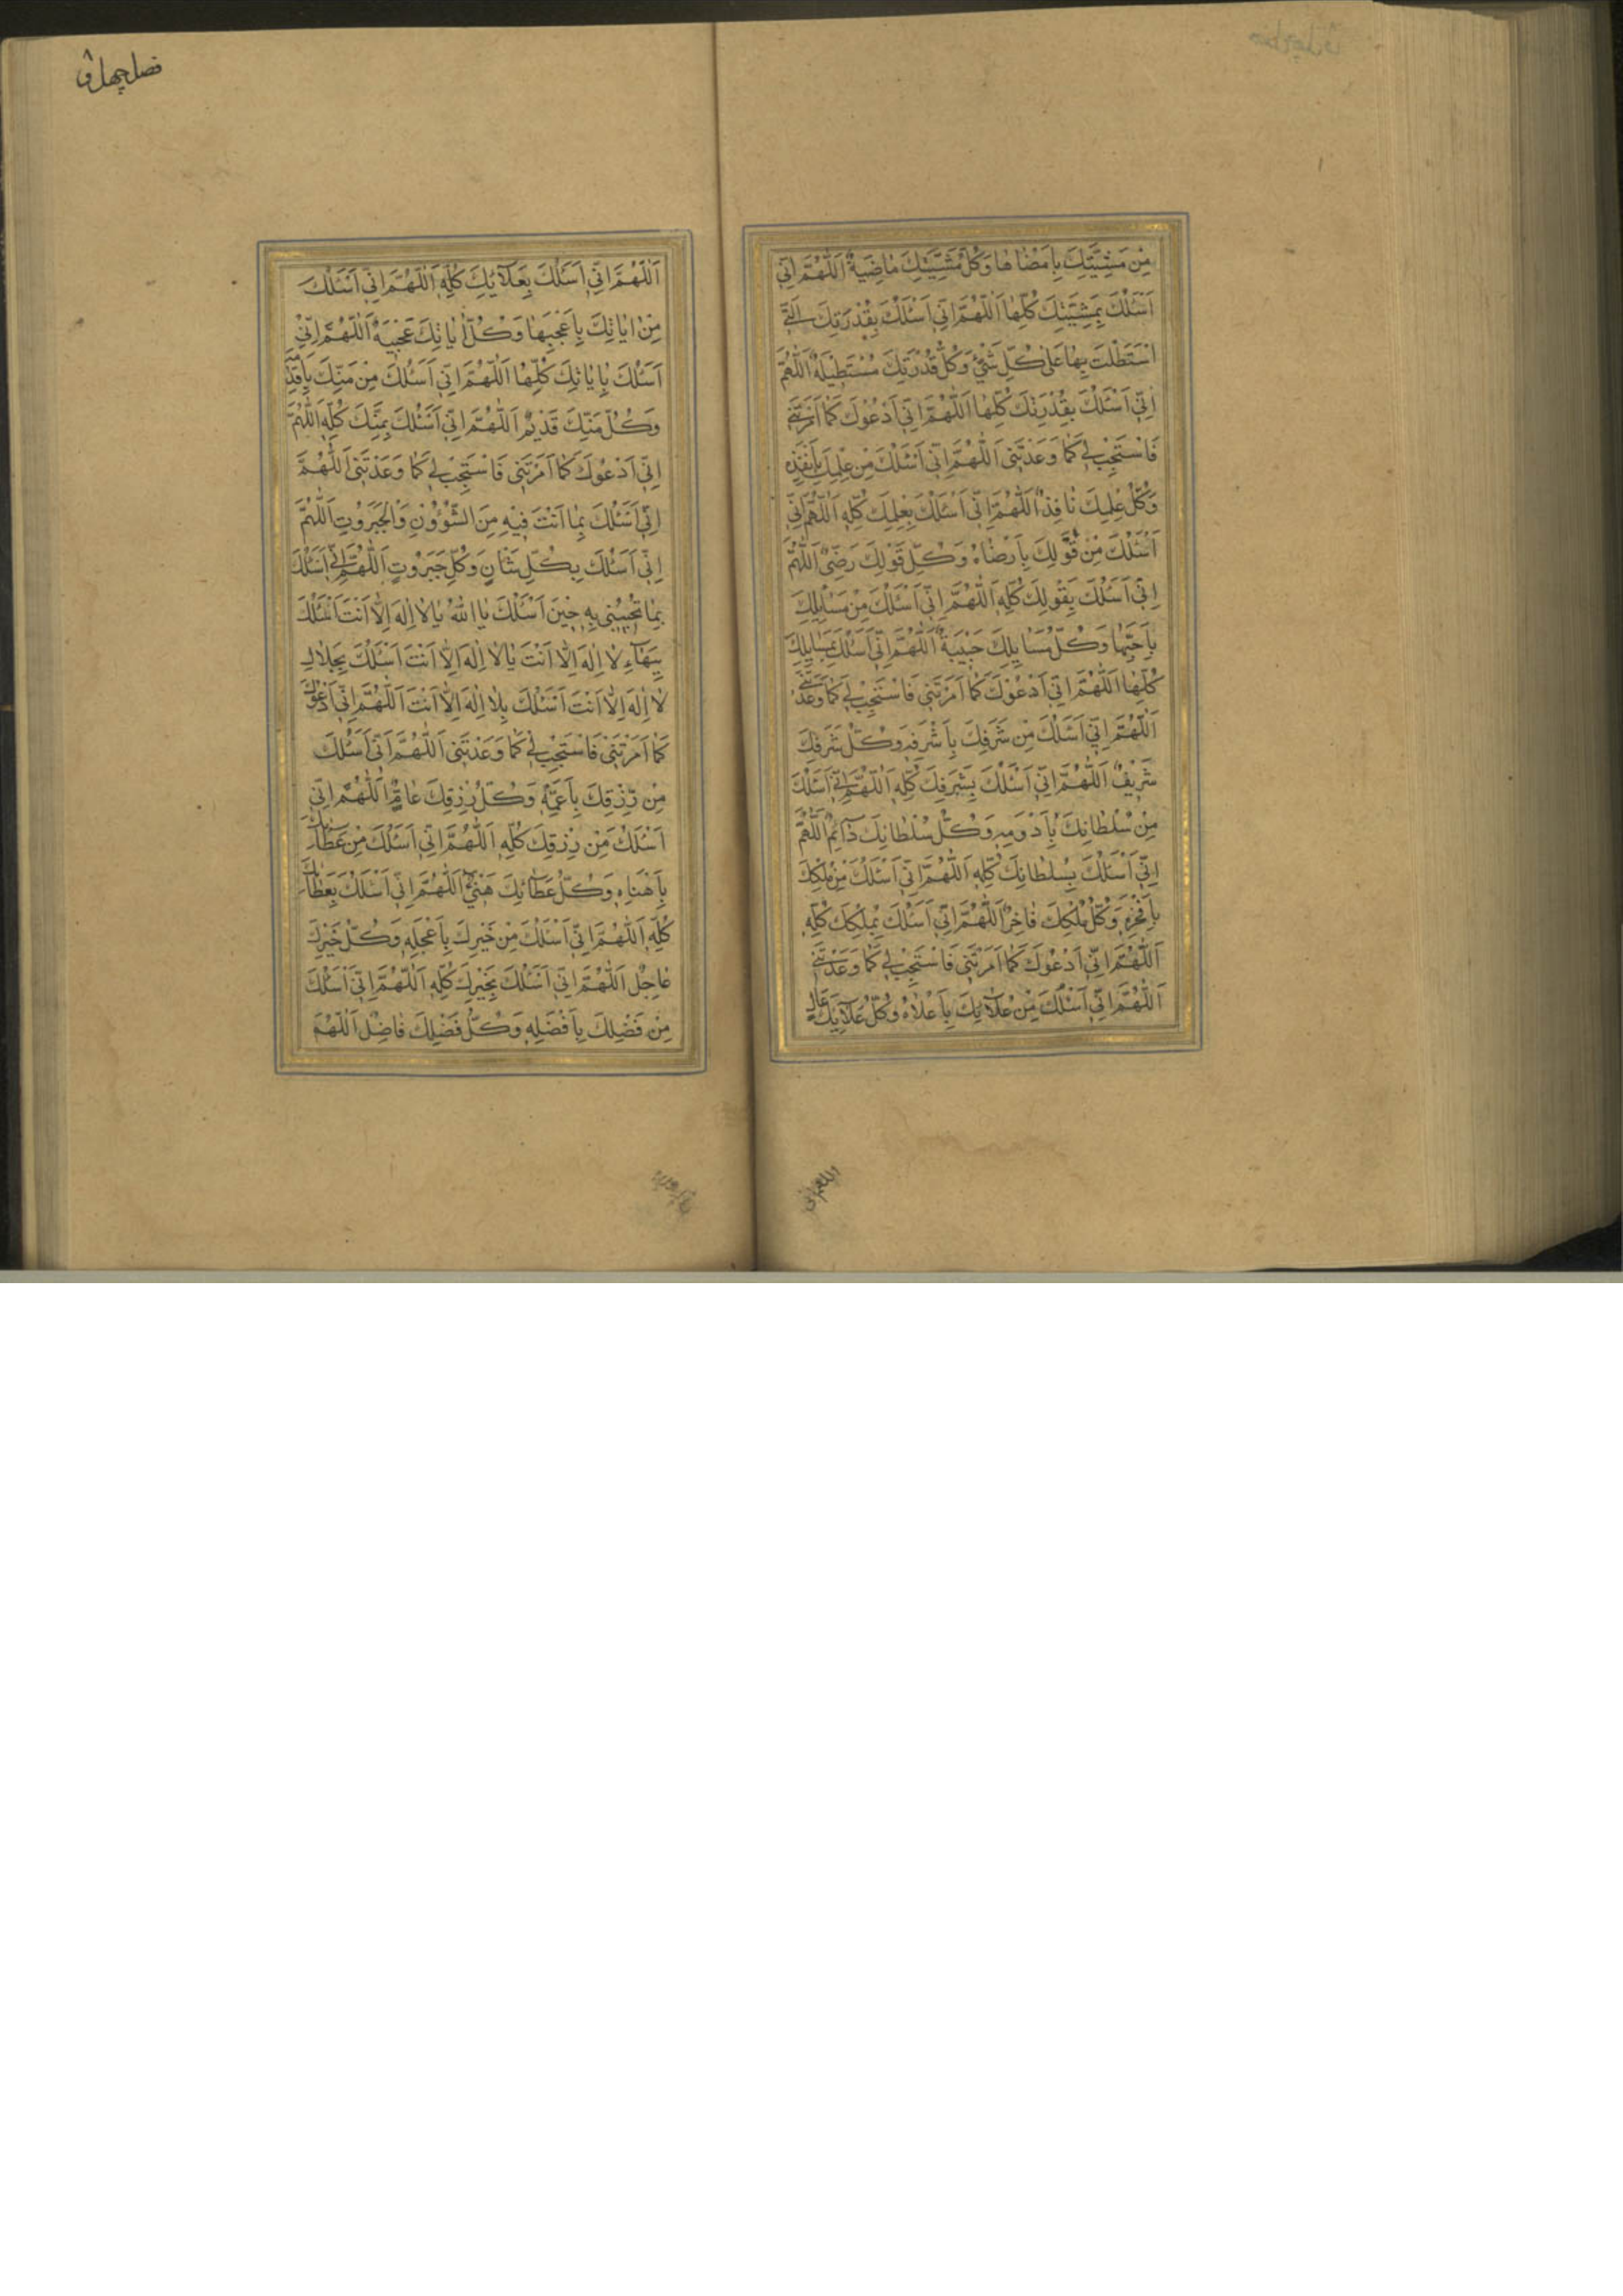 مِنْ مَشِيَّتِكَ بِاَمْضٰاهٰا وَكُلُّ مَشِيَّتِكَ مٰاضِيَةٌ اَللّٰهُمَّ اِنّٖى
اَسْئَلُكَ بِمَشِيَّتِكَ كُلِّهٰا اَللّٰهُمَّ اِنّٖى اَسْئَلُكَ بِقُدْرَتِكَ الَّتٖى
اسْتَطَلْتَ بِهٰا عَلٰى كُلِّ شَىْءٍ وَكُلُّ قُدْرَتِكَ مُسْتَطٖيلَةٌ اَللّٰهُمَّ
اِنّٖى اَسْئَلُكَ بِقُدْرَتِكَ كُلِّهٰا اَللّٰهُمَّ اِنّٖى اَدْعُوكَ كَمٰا اَمَرْتَنٖى
فَاسْتَجِبْ لٖى كَمٰا وَعَدْتَنٖى اَللّٰهُمَّ اِنّٖى اَسْئَلُكَ مِنْ عِلْمِكَ بِاَنْفَذِهٖ
وَكُلُّ عِلْمِكَ نٰافِذٌ اَللّٰهُمَّ اِنّٖى اَسْئَلُكَ بِعِلْمِكَ كُلِّهٖ اَللّٰهُمَّ اِنّٖى
اَسْئَلُكَ مِنْ قَوْلِكَ بِاَرْضٰاهُ وَكُلُّ قَوْلِكَ رَضِىٌّ اَللّٰهُمَّ
اِنّٖى اَسْئَلُكَ بِقَوْلِكَ كُلِّهٖ اَللّٰهُمَّ اِنّٖى اَسْئَلُكَ مِنْ مَسٰائِلِكَ
بِاَحَبِّهٰا وَكُلُّ مَسٰائِلِكَ حَبٖيبَةٌ اَللّٰهُمَّ اِنّٖى اَسْئَلُكَ بِمَسٰائِلِكَ
كُلِّهٰا اَللّٰهُمَّ اِنّٖى اَدْعُوكَ كَمٰا اَمَرْتَنٖى فَاسْتَجِبْ لٖى كَمٰا وَعَدْتَنٖى
اَللّٰهُمَّ اِنّٖى اَسْئَلُكَ مِنْ شَرَفِكَ بِاَشْرَفِهٖ وَكُلُّ شَرَفِكَ
شَرٖيفٌ اَللّٰهُمَّ اِنّٖى اَسْئَلُكَ بِشَرَفِكَ كُلِّهٖ اَللّٰهُمَّ اِنّٖى اَسْئَلُكَ
مِنْ سُلْطٰانِكَ بِاَدْوَمِهٖ وَكُلُّ سُلْطٰانِكَ دٰائِمٌ اَللّٰهُمَّ
اِنّٖى اَسْئَلُكَ بِسُلْطٰانِكَ كُلِّهٖ اَللّٰهُمَّ اِنّٖى اَسْئَلُكَ مِنْ مُلْكِكَ
بِاَفْخَرِهٖ وَكُلُّ مُلْكِكَ فٰاخِرٌ اَللّٰهُمَّ اِنّٖى اَسْئَلُكَ بِمُلْكِكَ كُلِّهٖ
اَللّٰهُمَّ اِنّٖى اَدْعُوكَ كَمٰا اَمَرْتَنٖى فَاسْتَجِبْ لٖى كَمٰا وَعَدْتَنٖى
اَللّٰهُمَّ اِنّٖى اَسْئَلُكَ مِنْ عَلاٰئِكَ بِاَعْلاٰهُ وَكُلُّ عَلاٰئِكَ عٰالٍ
اللهم انى
فصل چهل و
اَللّٰهُمَّ اِنّٖى اَسْئَلُكَ بِعَلاٰئِكَ كُلِّهٖ اَللّٰهُمَّ اِنّٖى اَسْئَلُكَ
مِنْ اٰيٰاتِكَ بِاَعْجَبِهٰا وَكُلُّ اٰيٰاتِكَ عَجٖيبَةٌ اَللّٰهُمَّ اِنّٖى
اَسْئَلُكَ بِاٰيٰاتِكَ كُلِّهٰا اَللّٰهُمَّ اِنّٖى اَسْئَلُكَ مِنْ مَنِّكَ بِاَقْدَمِهٖ
وَكُلُّ مَنِّكَ قَدٖيمٌ اَللّٰهُمَّ اِنّٖى اَسْئَلُكَ بِمَنِّكَ كُلِّهٖ اَللّٰهُمَّ
اِنّٖى اَدْعُوكَ كَمٰا اَمَرْتَنٖى فَاسْتَجِبْ لٖى كَمٰا وَعَدْتَنٖى اَللّٰهُمَّ
اِنّٖى اَسْئَلُكَ بِمٰا اَنْتَ فٖيهِ مِنَ الشُّؤُونِ وَالْجَبَرُوتِ اَللّٰهُمَّ
اِنّٖى اَسْئَلُكَ بِكُلِّ شَأْنٍ وَكُلِّ جَبَرُوتٍ اَللّٰهُمَّ اِنّٖى اَسْئَلُكَ
بِمٰا تُجٖيبُنٖى بِهٖ حٖينَ اَسْئَلُكَ يٰا اَللّٰهُ يٰا لاٰ اِلٰهَ اِلاّٰ اَنْتَ اَسْئَلُكَ
بِبَهٰاءِ لاٰ اِلٰهَ اِلاّٰ اَنْتَ يٰا لاٰ اِلٰهَ اِلاّٰ اَنْتَ اَسْئَلُكَ بِجَلاٰلِ
لاٰ اِلٰهَ اِلاّٰ اَنْتَ اَسْئَلُكَ بِلاٰ اِلٰهَ اِلاّٰ اَنْتَ اَللّٰهُمَّ اِنّٖى اَدْعُوكَ
كَمٰا اَمَرْتَنٖى فَاسْتَجِبْ لٖى كَمٰا وَعَدْتَنٖى اَللّٰهُمَّ اِنّٖى اَسْئَلُكَ
مِنْ رِزْقِكَ بِاَعَمِّهٖ وَكُلُّ رِزْقِكَ عٰامٌّ اَللّٰهُمَّ اِنّٖى
اَسْئَلُكَ مِنْ رِزْقِكَ كُلِّهٖ اَللّٰهُمَّ اِنّٖى اَسْئَلُكَ مِنْ عَطٰائِكَ
بِاَهْنَاِهٖ وَكُلُّ عَطٰائِكَ هَنٖىءٌ اَللّٰهُمَّ اِنّٖى اَسْئَلُكَ بِعَطٰائِكَ
كُلِّهٖ اَللّٰهُمَّ اِنّٖى اَسْئَلُكَ مِنْ خَيْرِكَ بِاَعْجَلِهٖ وَكُلُّ خَيْرِكَ
عٰاجِلٌ اَللّٰهُمَّ اِنّٖى اَسْئَلُكَ بِخَيْرِكَ كُلِّهٖ اَللّٰهُمَّ اِنّٖى اَسْئَلُكَ
مِنْ فَضْلِكَ بِاَفْضَلِهٖ وَكُلُّ فَضْلِكَ فٰاضِلٌ اَللّٰهُمَّ